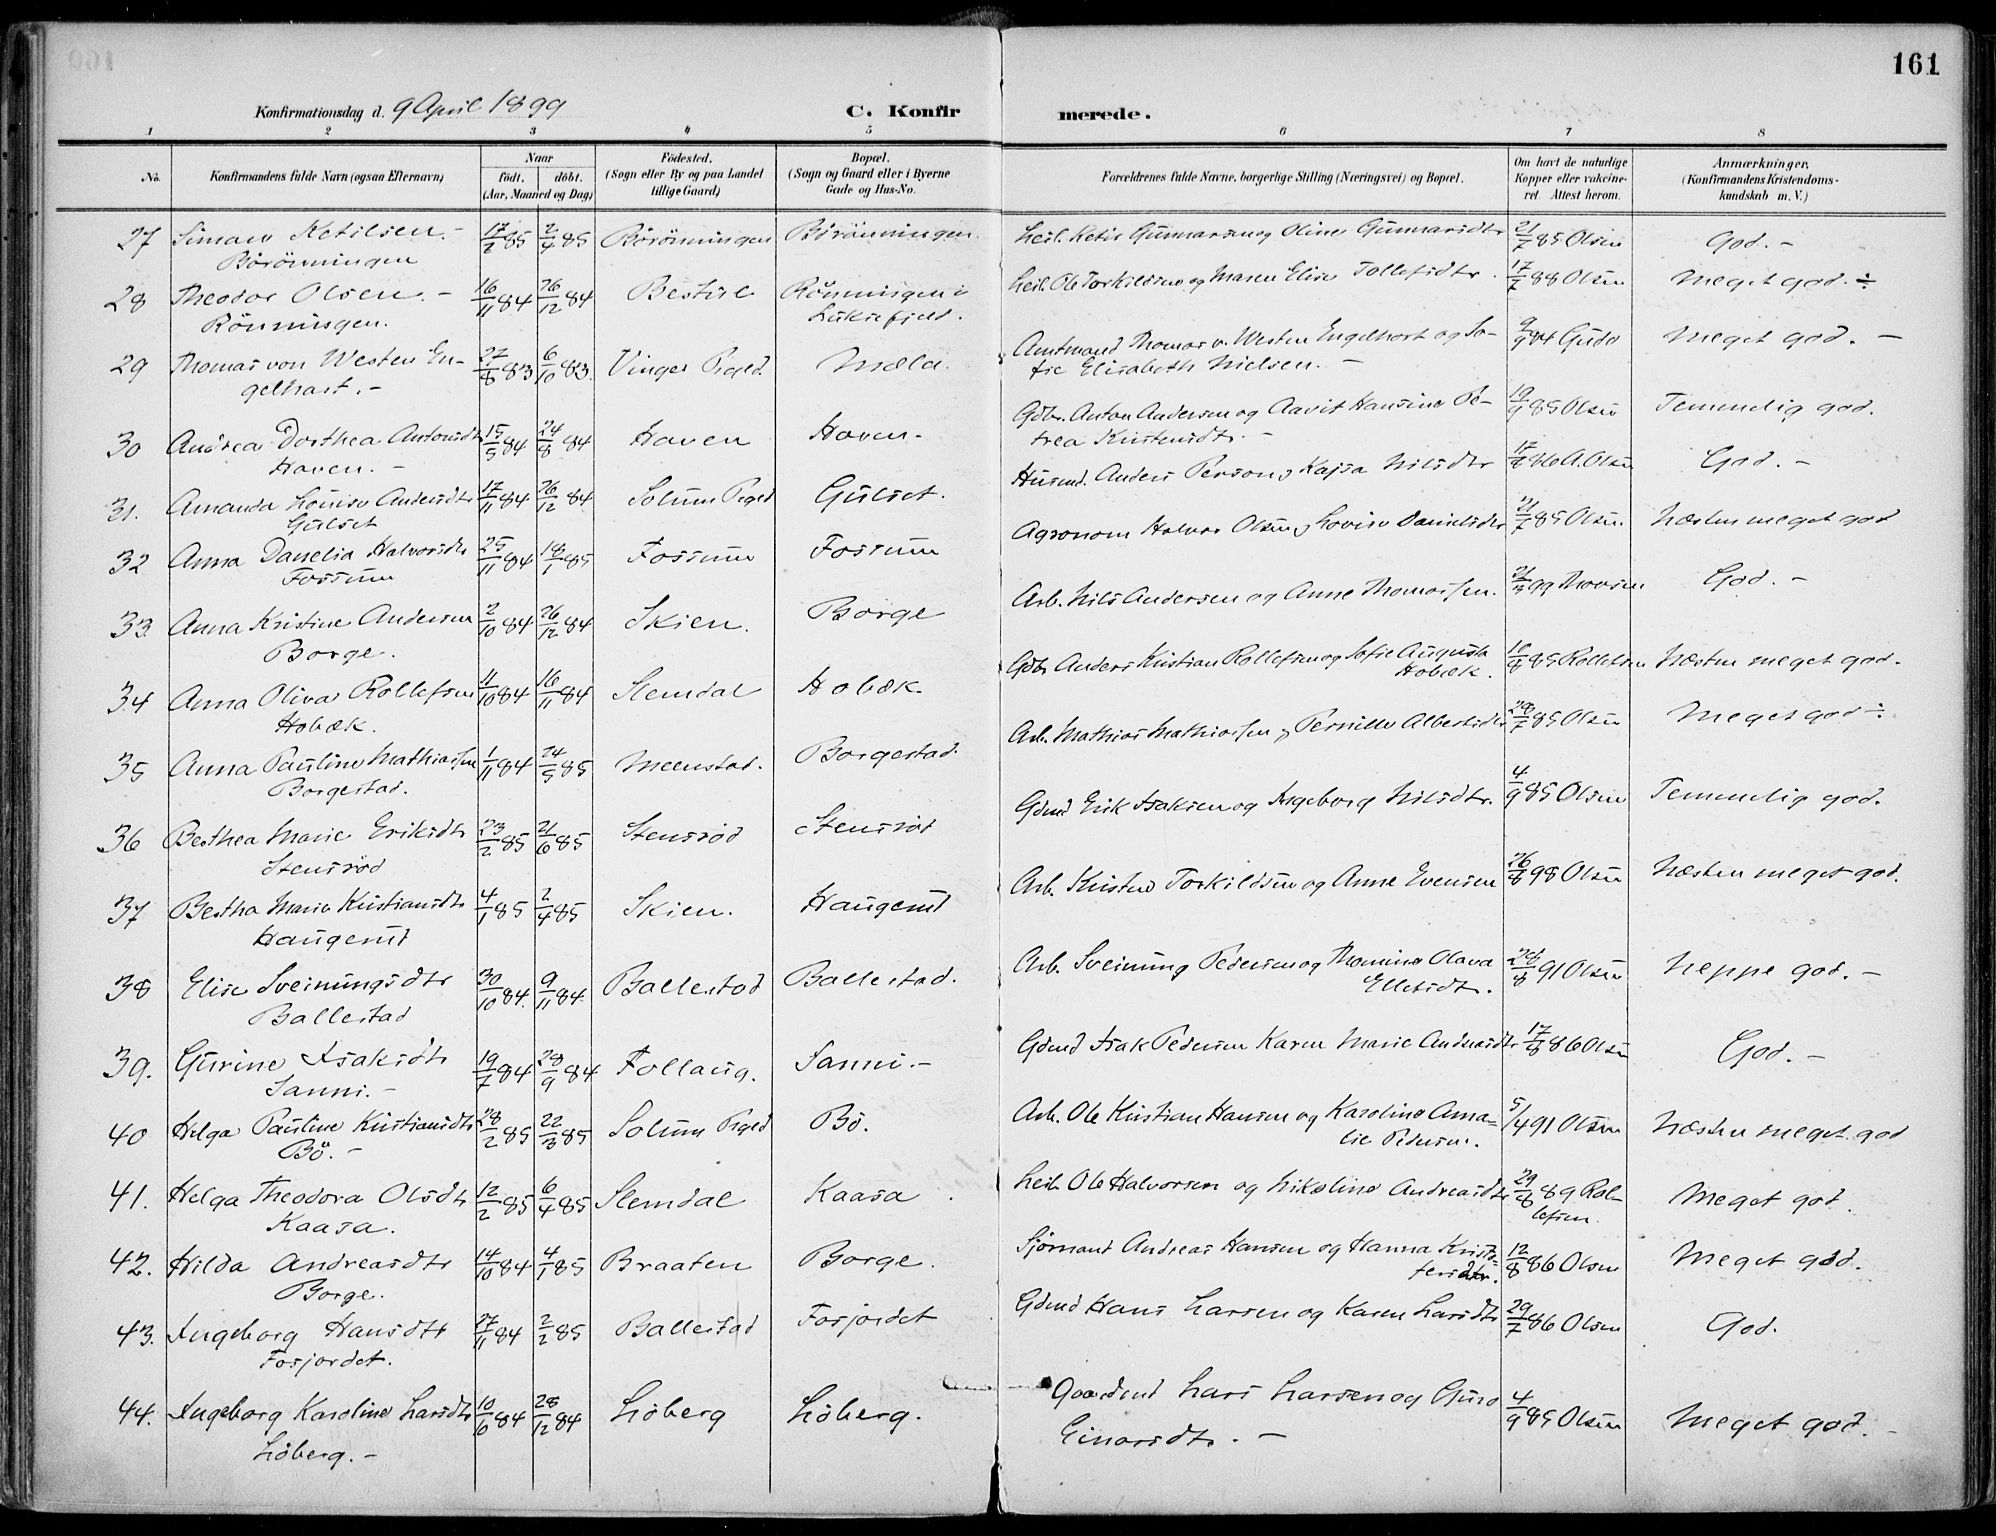 161
Konfirmationsdag d. 9 April 1899
C. Konfirmerede.
1 2 3 4 5 6 7 8
No.
Konfirmandens fulde Navn (ogsaa Efternavn)
Naar
født. døbt.
(Aar, Maaned og Dag)
Fødested.
(Sogn eller By og paa Landet
tillige Gaard)
Bopæl.
(Sogn og Gaard eller i Byerne
Gade og Hus-No.
Forældrenes fulde Navne, borgerlige Stilling (Næringsvei) og Bopæl.
Om havt de naturlige
Kopper eller vakcine-
ret. Attest herom.
Anmærkninger.
(Konfirmandens Kristendoms-
kundskab m. V.)
27 Simon Ketilsen. - 17/2 85 2/4 85 Börönningen Börönningen. Leil. Ketil Gunnarsen og Oline Gunnarsdtr 21/7 85 Olsen God. -
Börönningen
28 Theodor Olsen. - 16/11 84 26/12 84 Bestul Rönningen i Leil. Ole Torkildsen og Maren Elise Tollefsdtr. 17/7 88 Olsen Meget god. ÷
Rönningen. Luksefjeld.
29 Thomas von Westen En- 27/8 83 6/10 83. Vinger Prgld. Mæla. Amtmand Thomas v. Westen Engelhart og So- 9/9 84 Gude Meget god. -
gelhart. - fie Elisabeth Nielsen. -
30 Andrea Dorthea Antonsdtr 15/5 84 24/8 84 Haven Haven. Gdbr. Anton Andersen og Aavit Hansine Pe- 19/9 85 Olsen Temmelig god.
Haven. - trea Kristensdtr. -
31. Amanda Louise Andersdtr 17/11 84 26/12 84 Solum Prgld Gulset. Husmd. Anders Person, Kajsa Nilsdtr 17/8 86 A. Olsen God. -
Gulset
32 Anna Danelia Halvorsdtr 25/11 84 18/1 85 Fossum Fossum Agronom Halvor Olsen, Lovise Danielsdtr 21/7 85 Olsen. Næsten meget god
Fossum
33. Anna Kristine Andersen 2/10 84 26/12 84 Skien. Borge Arb. Nils Andersen og Anne Thomassen. 21/3 99 Thorsen God. -
Borge.
34 Anna Oliva Rollefsen 11/10 84 16/11 84 Slemdal Hobæk. Gdbr. Anders Kristian Rollefsen og Sofie Augusta 10/8 85 Rollefsen Næsten meget god.
Hobæk. Hobæk.
35 Anna Pauline Mathiassen 1/11 84 24/5 85 Meenstad. Borgestad. Arb. Mathias Mathiassen, Pernille Albertsdtr 28/7 85 Olsen Meget god ÷
Borgestad.
36 Berthea Marie Eriksdtr 23/2 85 21/6 85 Stensrød Stensrød Gdmd Erik Isaksen og Ingeborg Nilsdtr. 4/9 85 Olsen Temmelig god.
Stensrød
37 Bertha Marie Kristiansdtr 4/1 85 2/4 85 Skien. Haugerud Arb. Kristen Torkildsen og Anne Evensen 26/8 98 Olsen Næsten meget god.
Haugerud
38 Elise Sveinungsdtr 30/10 84. 9/11 84 Ballestad Ballestad. Arb. Sveinung Pedersen og Thomine Olava 28/8 91 Olsen Neppe god. -
Ballestad Ellefsdtr.
39. Gurine Isaksdtr 19/7 84 28/9 84 Follaug. Sanni. - Gdmd Isak Pedersen Karen Marie Andreasdtr 17/8 86 Olsen God. -
Sanni. -
40 Helga Pauline Kristiansdtr 28/2 85 22/3 85 Solum Prgld Bö. Arb. Ole Kristian Hansen og Karoline Ama- 5/4 91 Olsen Næsten meget god
Bö. - lie Pedersen.
41. Helga Theodora Olsdtr 12/2 85 6/4 85 Slemdal Kaasa Leil. Ole Halvorsen og Nikoline Andreasdtr 29/8 89 Rol- Meget god.
Kaasa. lefsen.
42. Hilda Andreasdtr 14/10 84 4/1 85 Braaten Borge. Sjømand Andreas Hansen og Hanna Kristo- 12/8 86 Olsen Meget god.
Borge. fersdtr.
43. Ingeborg Hansdtr 27/11 84 2/2 85 Ballestad Fosjordet Gdmd Hans Larsen og Karen Larsdtr 29/7 86 Olsen God.
Fosjordet.
44. Ingeborg Karoline Larsdtr 10/10 84 28/12 84 Liöberg Liöberg. Gaardmd Lars Larsen og Guro 4/9 85 Olsen Meget god. -
Liöberg. - Einarsdtr. -